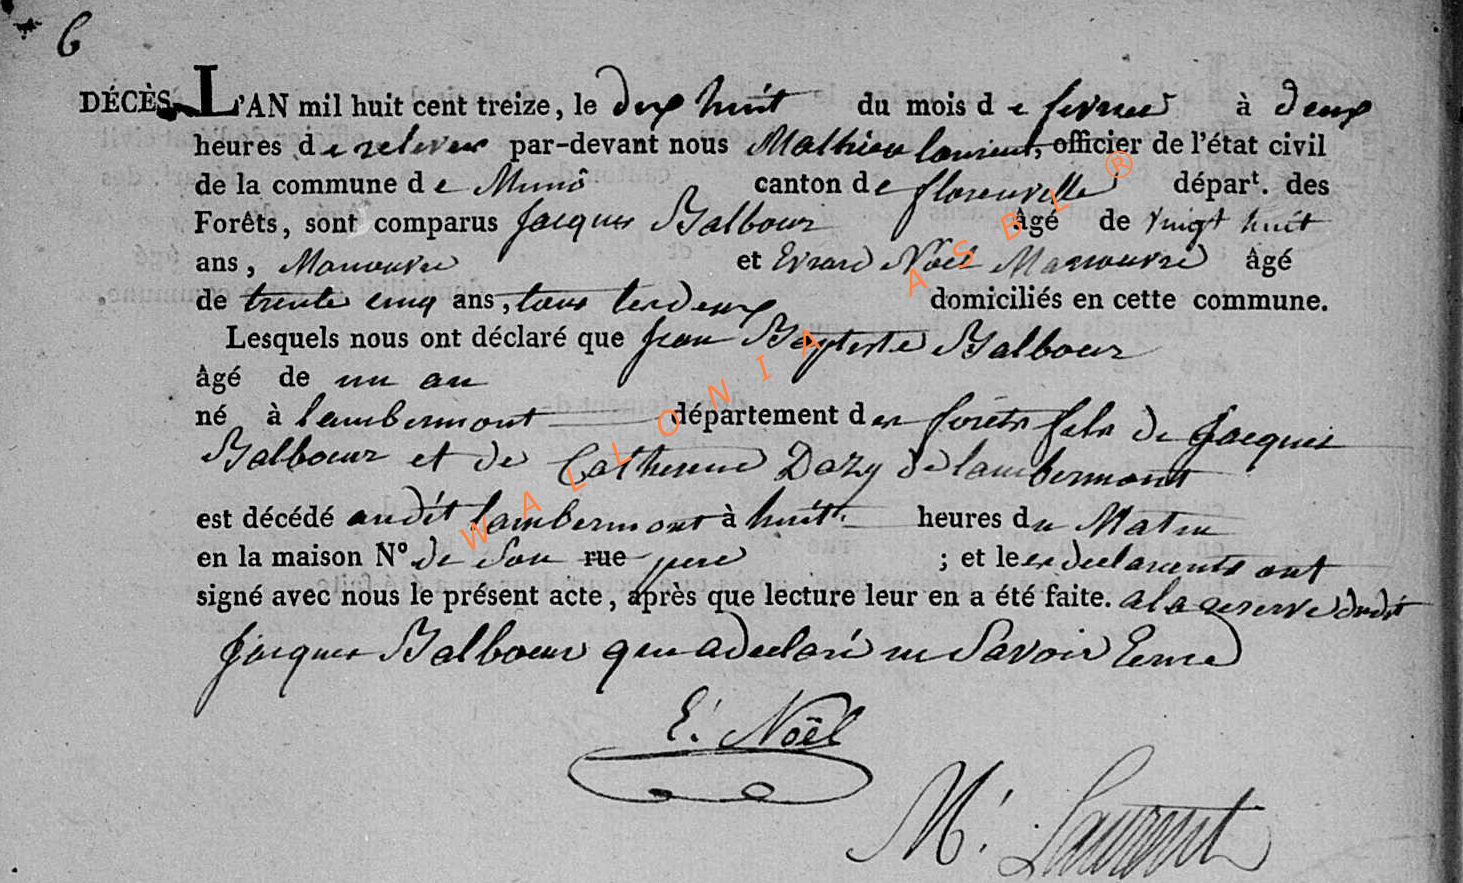 6
DÉCÈS L'AN mil huit cent treize, le dix huit du mois de fevrier à deux
heures de relevee par-devant nous Mathieu laurent, officier de l'état civil
de la commune de Muno canton de florenville départ. des
Forêts, sont comparus Jacques Balbour âgé de vingt huit
ans, Manouvre et Evrard Noël Manouvre âgé
de trente cinq ans, tous les deux domiciliés en cette commune.
Lesquels nous ont déclaré que Jean Baptiste Balbour
âgé de un an
né à lambermont département des forêts fils de Jacques
Balbour et de Catherine Dazy de lambermont
est décédé audit lambermont à huit heures du Matin
en la maison N° de Son rue pere ; et les declarents ont
signé avec nous le présent acte, après que lecture leur en a été faite. a la reserve dudit
Jacques Balbour qui a declaré ne Savoir Ecrire
E. Noël
M. Laurent
WALLONIA ASBL ®